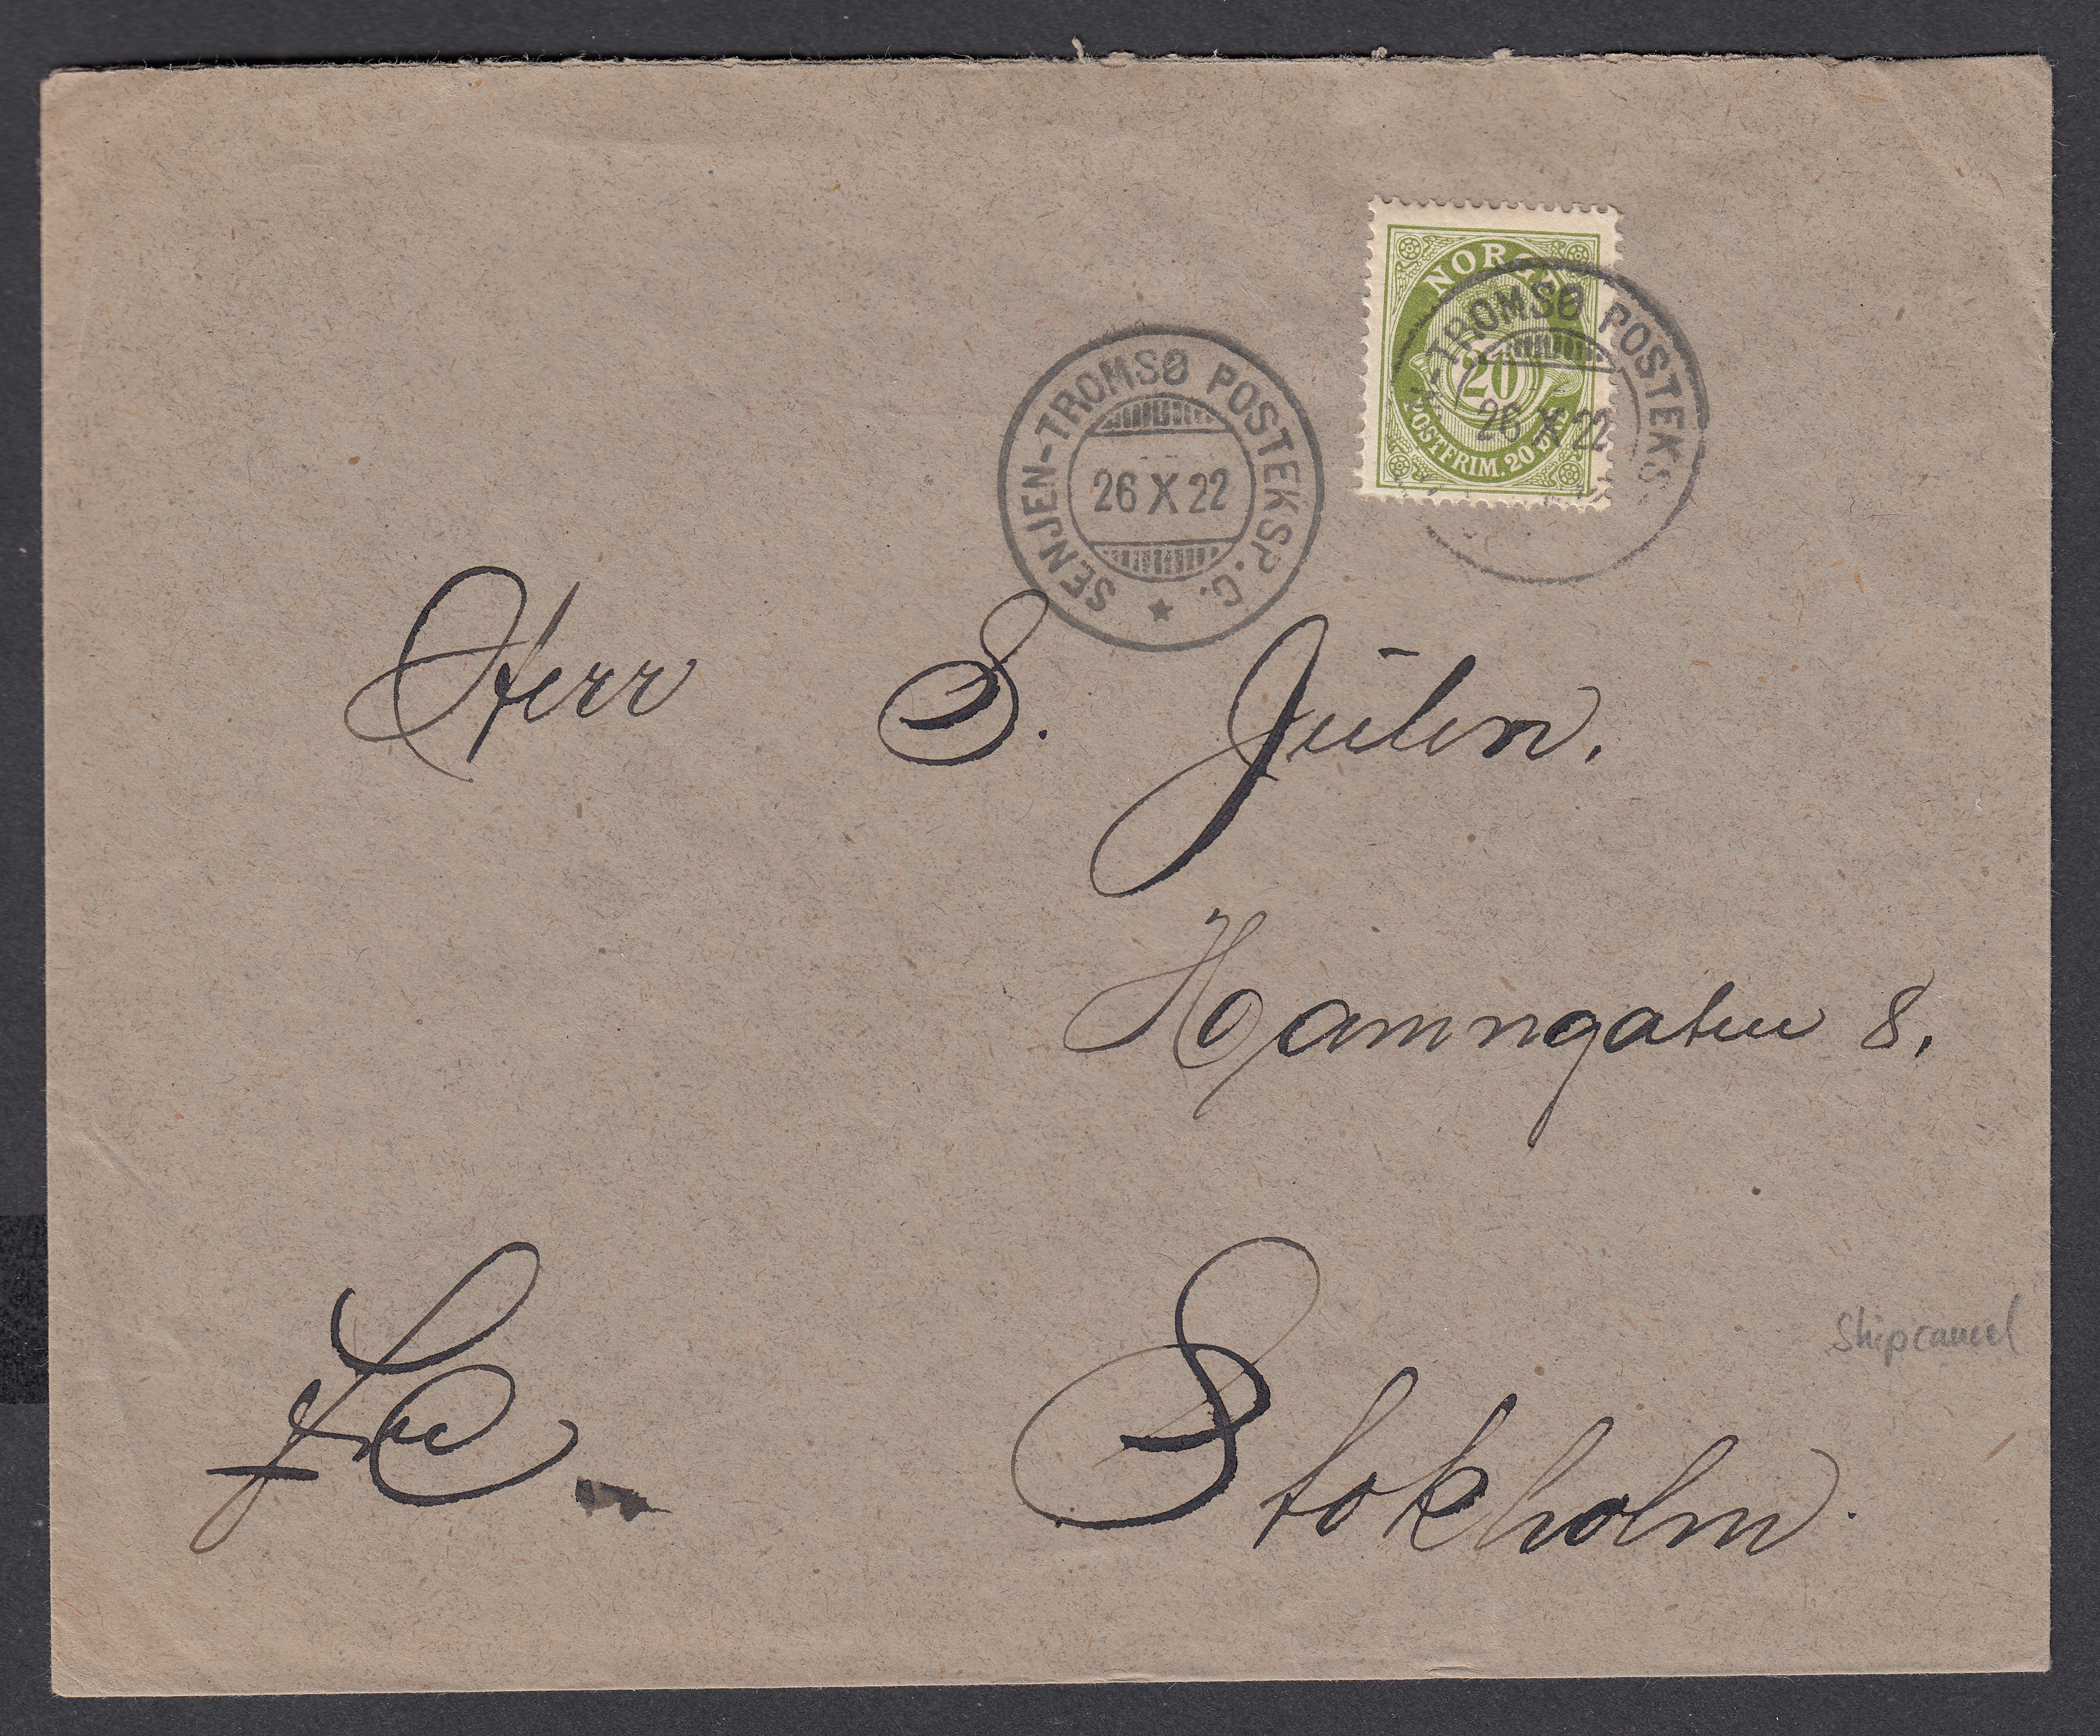 NORGE
20
POSTFRIM. 20 ØRE
-TROMSØ POSTEKS
26 X 22
SENJEN-TROMSØ POSTEKSP. C.
26 X 22
Herr S. Julin.
Hamngatan 8.
Shipcancel
Stokholm.